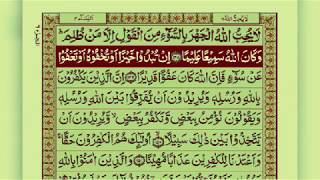 لَا يُحِبُّ اللّٰهُ الْجَهْرَ بِالسُّوْٓءِ مِنَ الْقَوْلِ اِلَّا مَنْ ظُلِمَ ؕ
وَكَانَ اللّٰهُ سَمِيْعًا عَلِيْمًا ﴿۱۴۸﴾ اِنْ تُبْدُوْا خَيْرًا اَوْ تُخْفُوْهُ اَوْ تَعْفُوْا
عَنْ سُوْٓءٍ فَاِنَّ اللّٰهَ كَانَ عَفُوًّا قَدِيْرًا ﴿۱۴۹﴾ اِنَّ الَّذِيْنَ يَكْفُرُوْنَ
بِاللّٰهِ وَرُسُلِهٖ وَيُرِيْدُوْنَ اَنْ يُّفَرِّقُوْا بَيْنَ اللّٰهِ
وَرُسُلِهٖ وَيَقُوْلُوْنَ نُؤْمِنُ بِبَعْضٍ وَّنَكْفُرُ بِبَعْضٍ ۙ وَّيُرِيْدُوْنَ اَنْ
يَّتَّخِذُوْا بَيْنَ ذٰلِكَ سَبِيْلًا ﴿۱۵۰﴾ اُولٰٓئِكَ هُمُ الْكٰفِرُوْنَ حَقًّا ۚ
وَاَعْتَدْنَا لِلْكٰفِرِيْنَ عَذَابًا مُّهِيْنًا ﴿۱۵۱﴾ وَالَّذِيْنَ اٰمَنُوْا بِاللّٰهِ